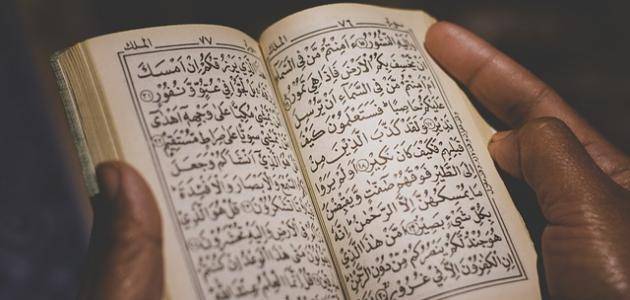 سورة ٧٦ الملك
وَإِلَيْهِ النُّشُورُ ۝ ءَأَمِنتُم مَّن فِي السَّمَاءِ
أَن يَخْسِفَ بِكُمُ الْأَرْضَ فَإِذَا هِيَ تَمُورُ
أَمْ أَمِنتُم مَّن فِي السَّمَاءِ أَن يُرْسِلَ
عَلَيْكُمْ حَاصِبًا فَسَتَعْلَمُونَ كَيْفَ
نَذِيرِ ۝ وَلَقَدْ كَذَّبَ الَّذِينَ مِن
قَبْلِهِمْ فَكَيْفَ كَانَ نَكِيرِ ۝ أَوَلَمْ يَرَوْا
إِلَى الطَّيْرِ فَوْقَهُمْ صَٰٓفَّٰتٍ وَيَقْبِضْنَ
مَا يُمْسِكُهُنَّ إِلَّا الرَّحْمَٰنُ إِنَّهُ
بِكُلِّ شَيْءٍ بَصِيرٌ ۝ أَمَّنْ هَٰذَا الَّذِي
هُوَ جُندٌ لَّكُمْ يَنصُرُكُم مِّن دُونِ الرَّحْمَٰنِ
إِنِ الْكَٰفِرُونَ إِلَّا فِي غُرُورٍ
سورة ٧٧ الملك
الَّذِي يَرْزُقُكُمْ إِنْ أَمْسَكَ
بَل لَّجُّوا فِي عُتُوٍّ وَنُفُورٍ ۝
يَمْشِي مُكِبًّا عَلَىٰ وَجْهِهِ أَهْدَىٰ
يَمْشِي سَوِيًّا عَلَىٰ صِرَٰطٍ مُّسْتَقِيمٍ
هُوَ الَّذِي أَنشَأَكُمْ وَجَعَلَ
السَّمْعَ وَالْأَبْصَٰرَ وَالْأَفْئِدَةَ
تَشْكُرُونَ ۝ قُلْ هُوَ الَّذِي
فِي الْأَرْضِ وَإِلَيْهِ تُحْشَرُونَ
مَتَىٰ هَٰذَا الْوَعْدُ إِن كُنتُمْ
قُلْ إِنَّمَا الْعِلْمُ